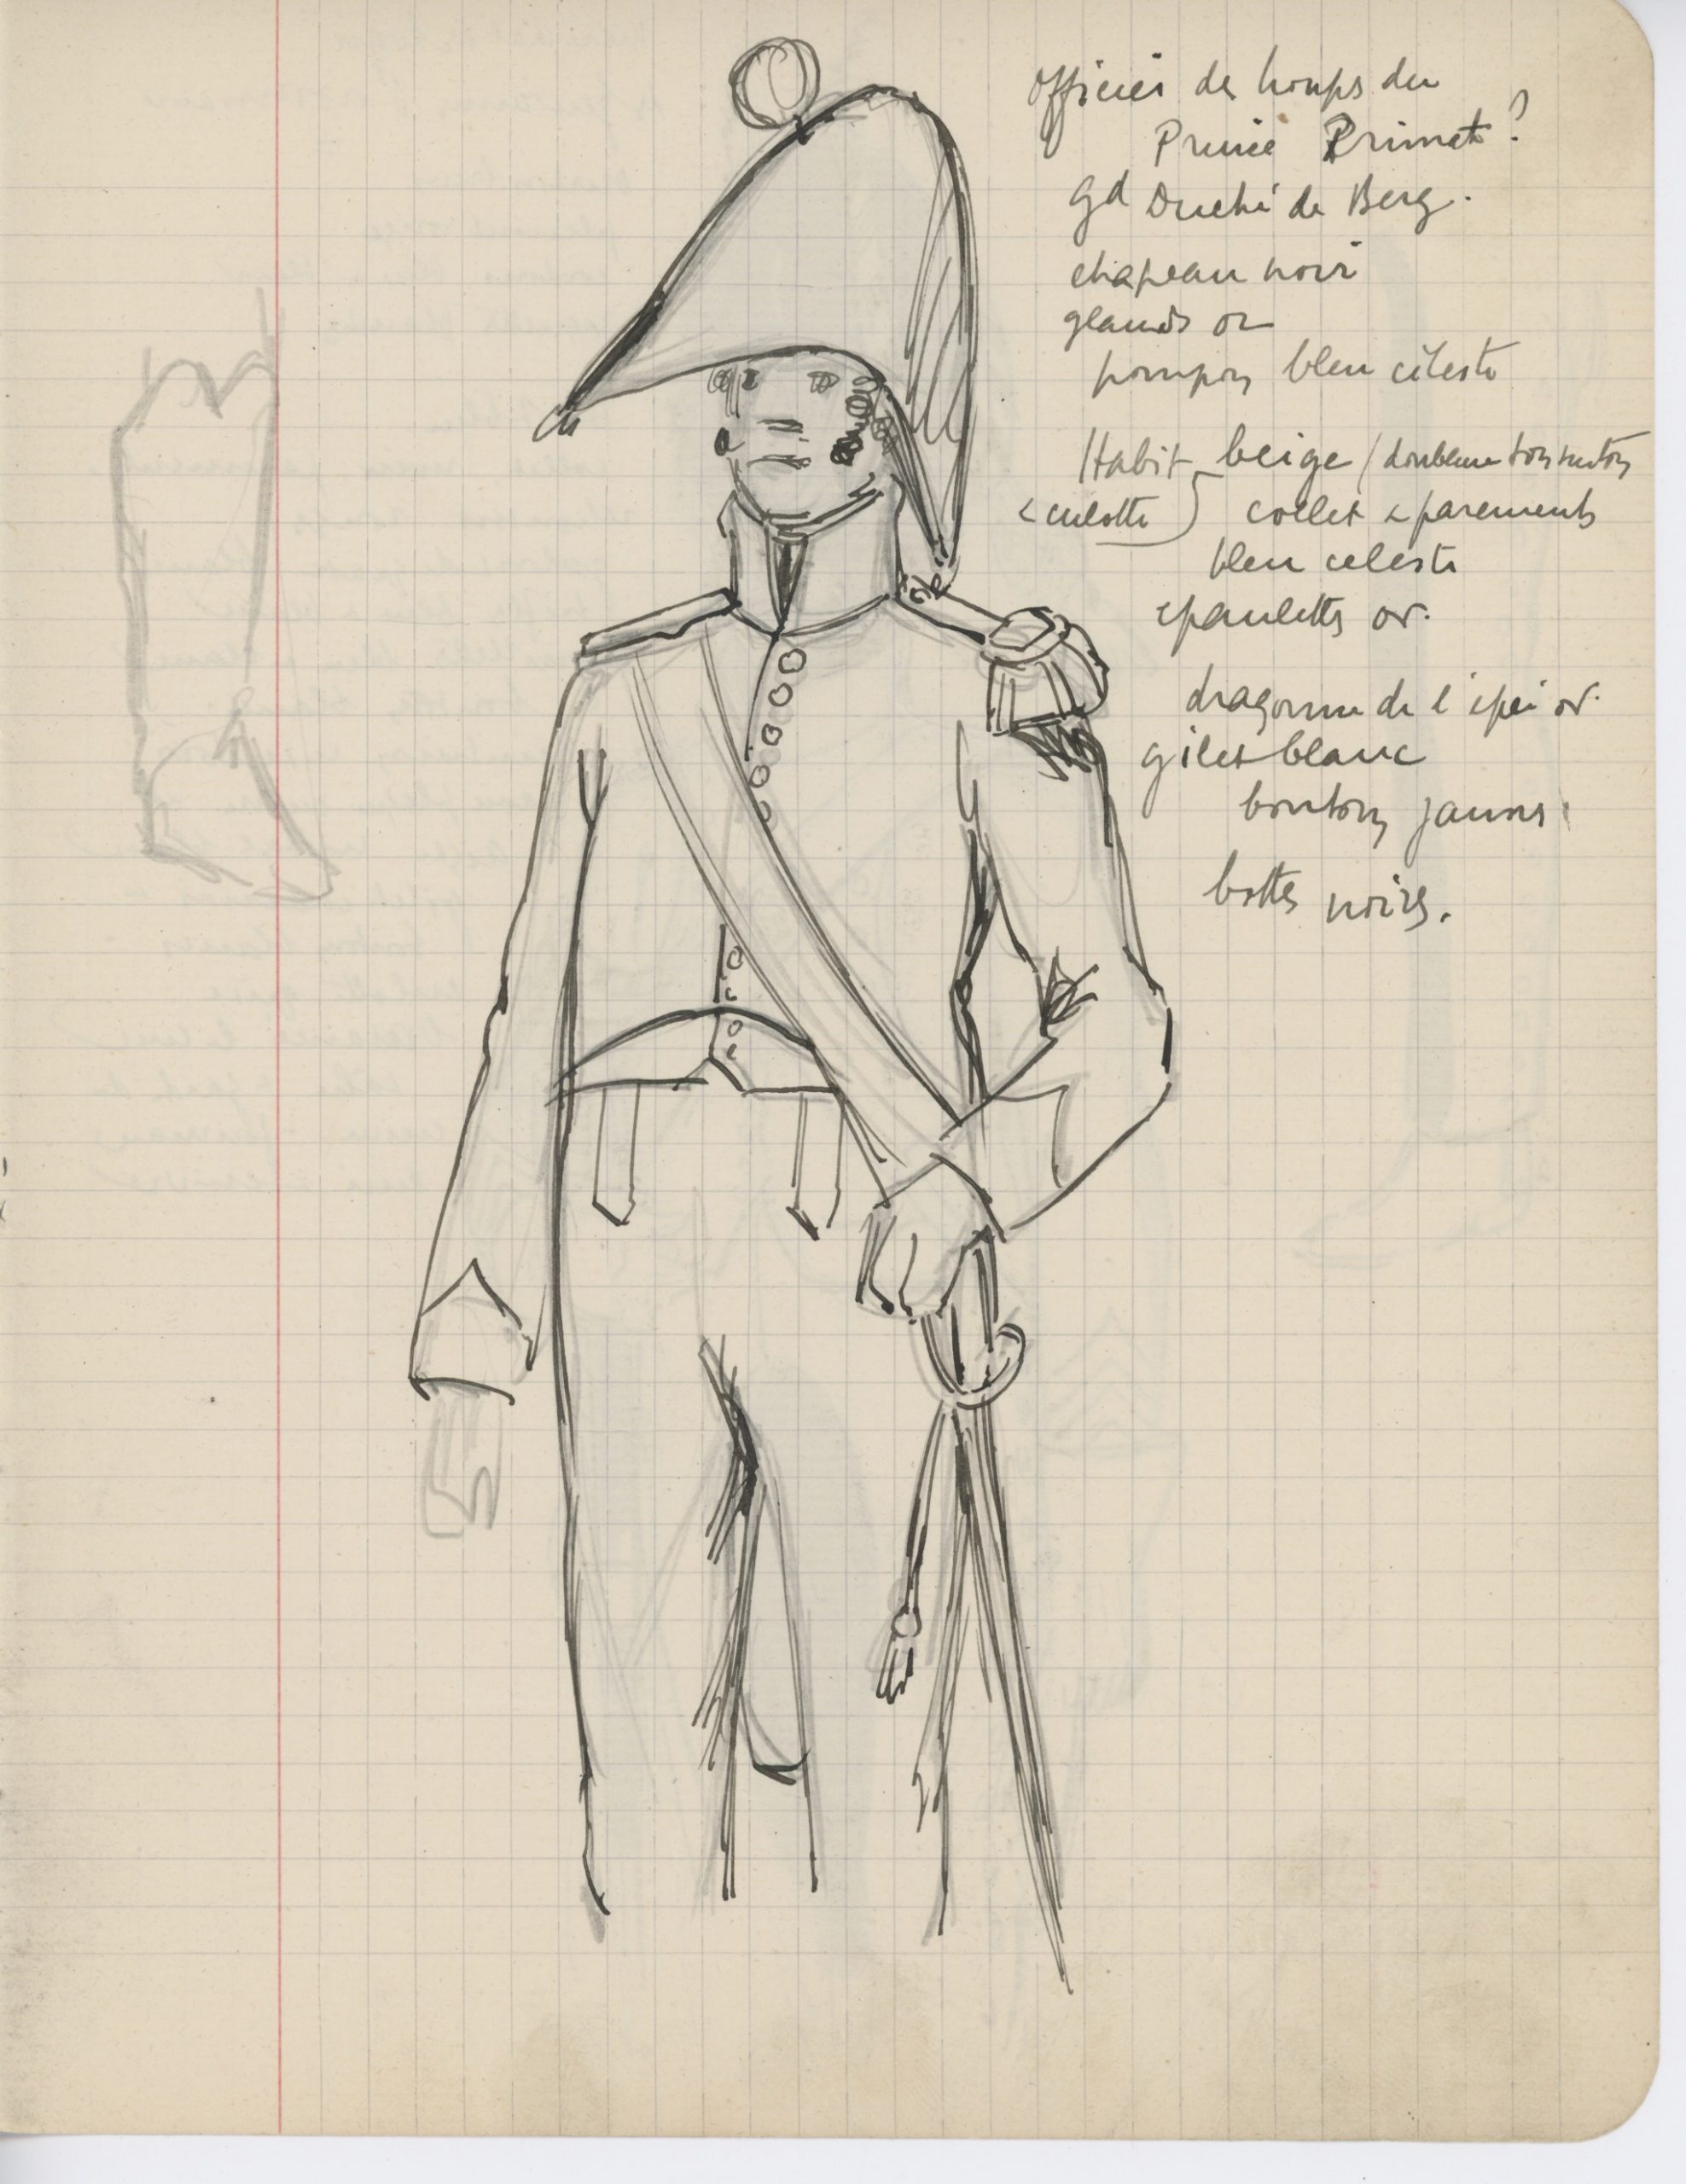 Officier des troupes du
Prince Primat ?
gd Duché de Berg.
chapeau noir
glands or
pompon bleu céleste
Habit beige / doublure ton ton
& culotte } collet & parements
bleu celeste
epaulettes or.
dragonne de l'épée or.
gilet blanc
boutons jaunes
bottes noires.